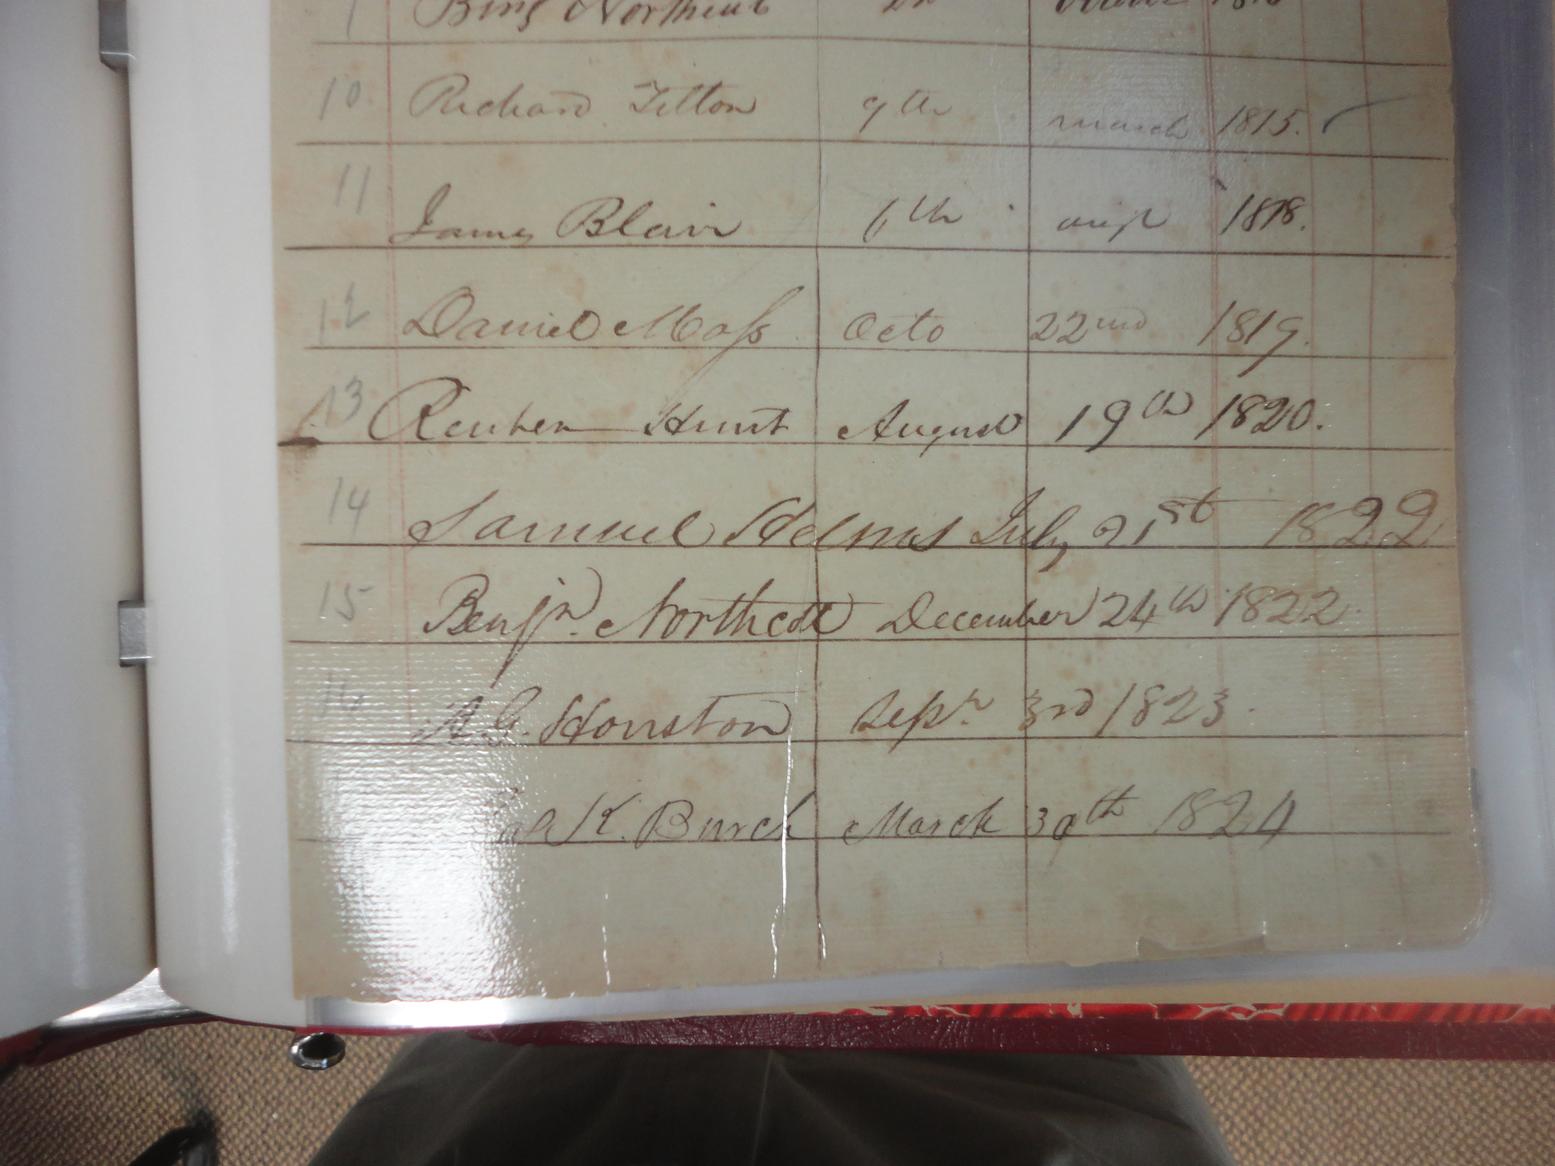 Benj Northcut
10 Richard Tilton 9th march 1815.
11 James Blair 6th augt 1818.
12 Daniel Moss Octo 22nd 1819.
13 Reuben Hunt August 19th 1820.
14 Samuel Helms July 21st 1822
15 Benjn. Northcott December 24th 1822.
16 A. G. Houston Sepr. 3rd 1823.
K. Burch March 30th 1824